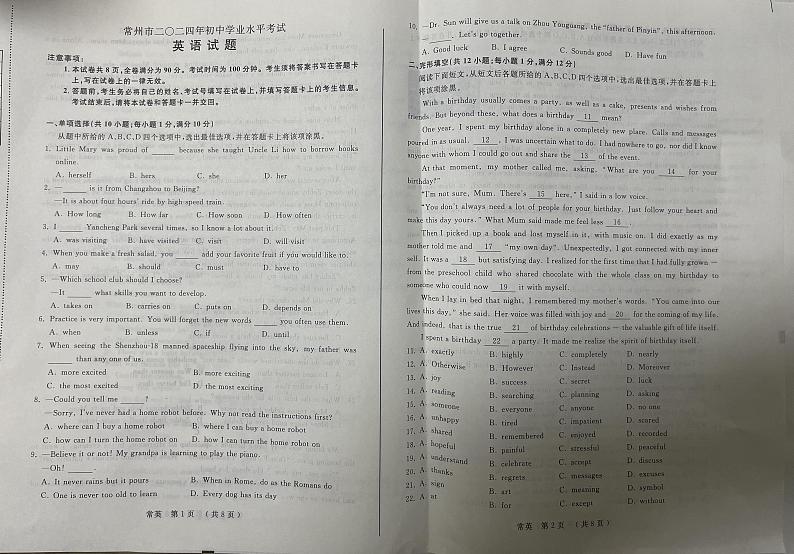 常州市二〇二四年初中学业水平考试
英语试题
注意事项：
1. 本试卷共 8 页,全卷满分为 90 分。考试时间为 100 分钟。考生须将答案书写在答题卡
上,写在试卷上的一律无效。
2. 答题前,考生务必将自己的姓名、考试号填写在试卷上,并填写答题卡上的考生信息。
考试结束后,请将本试卷和答题卡一并交回。
一、单项选择(共 10 小题;每小题 1 分,满分 10 分)
从题中所给的 A、B、C、D 四个选项中,选出最佳选项,并在答题卡上将该项涂黑。
1. Little Mary was proud of ______ because she taught Uncle Li how to borrow books
online.
A. herself B. hers C. she D. her
2. —______ is it from Changzhou to Beijing?
—It is about four hours' ride by high-speed train.
A. How long B. How far C. How soon D. How often
3. I ______ Yancheng Park several times, so I know a lot about it.
A. was visiting B. have visited C. visit D. will visit
4. When you make a fresh salad, you ______ add your favorite fruit if you would like to.
A. may B. should C. must D. have to
5. —Which school club should I choose?
—It ______ what skills you want to develop.
A. takes on B. carries on C. puts on D. depends on
6. Practice is very important. You will forget the new words ______ you often use them.
A. when B. unless C. if D. until
7. When seeing the Shenzhou-18 manned spaceship flying into the sky, my father was
______ than any one of us.
A. more excited B. more exciting
C. the most excited D. the most exciting
8. —Could you tell me ______?
—Sorry, I've never had a home robot before. Why not read the instructions first?
A. where can I buy a home robot B. where I can buy a home robot
C. how can I turn the home robot on D. how I can turn the home robot on
9. —Believe it or not! My grandpa is learning to play the piano.
—Oh! ______.
A. It never rains but it pours B. When in Rome, do as the Romans do
C. One is never too old to learn D. Every dog has its day
常英 第 1 页 (共 8 页)
10. —Dr. Sun will give us a talk on Zhou Youguang, the "father of Pinyin", this afternoon.
—______. Let's go together.
A. Good luck B. I agree C. Sounds good D. Have fun
二、完形填空(共 12 小题;每小题 1 分,满分 12 分)
阅读下面短文,从短文后各题所给的 A、B、C、D 四个选项中,选出最佳选项,并在答题卡上
将该项涂黑。
With a birthday usually comes a party, as well as a cake, presents and wishes from
friends. But beyond these, what does a birthday 11 mean?
One year, I spent my birthday alone in a completely new place. Calls and messages
poured in as usual. 12 , I was uncertain what to do. I had nowhere to go, nor did I know
anyone with whom I could go out and share the 13 of the event.
At that moment, my mother called me, asking, "What are you 14 for your
birthday?"
"I'm not sure, Mum. There's 15 here," I said in a low voice.
"You don't always need a lot of people for your birthday. Just follow your heart and
make this day yours." What Mum said made me feel less 16 .
Then I picked up a book and lost myself in it, with music on. I did exactly as my
mother told me and 17 "my own day". Unexpectedly, I got connected with my inner
self. It was a 18 but satisfying day. I realized for the first time that I had fully grown —
from the preschool child who shared chocolate with the whole class on my birthday to
someone who could now 19 it with myself.
When I lay in bed that night, I remembered my mother's words. "You came into our
lives this day," she said. Her voice was filled with joy and 20 for the coming of my life.
And indeed, that is the true 21 of birthday celebrations — the valuable gift of life itself.
I spent a birthday 22 a party. It made me realize the spirit of birthday itself.
11. A. exactly B. highly C. completely D. nearly
12. A. Otherwise B. However C. Instead D. Moreover
13. A. joy B. success C. secret D. luck
14. A. reading B. searching C. planning D. asking
15. A. someone B. everyone C. anyone D. no one
16. A. unhappy B. tired C. impatient D. scared
17. A. shared B. remembered C. enjoyed D. recorded
18. A. hopeful B. painful C. stressful D. peaceful
19. A. understand B. celebrate C. accept D. discuss
20. A. thanks B. regrets C. messages D. excuses
21. A. sign B. art C. meaning D. symbol
22. A. at B. for C. except D. without
常英 第 2 页 (共 8 页)